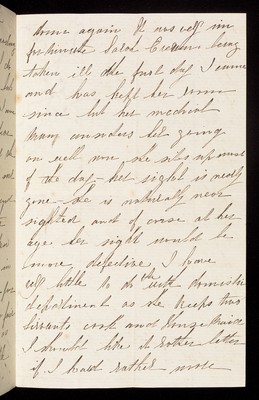 home again It was very un
fortunate Sarah Eward being
taken ill the first day I came
and has kept her room
since but her medical
man considers her going
on well now, she sits up most
of the day - her sight is nearly
gone - she is naturally near
sighted and of course at her
age her sight would be
more defective, I have
very little to do with domestic
department as she keeps two
servants cook and House Maid
I should like it rather better
if I had rather more